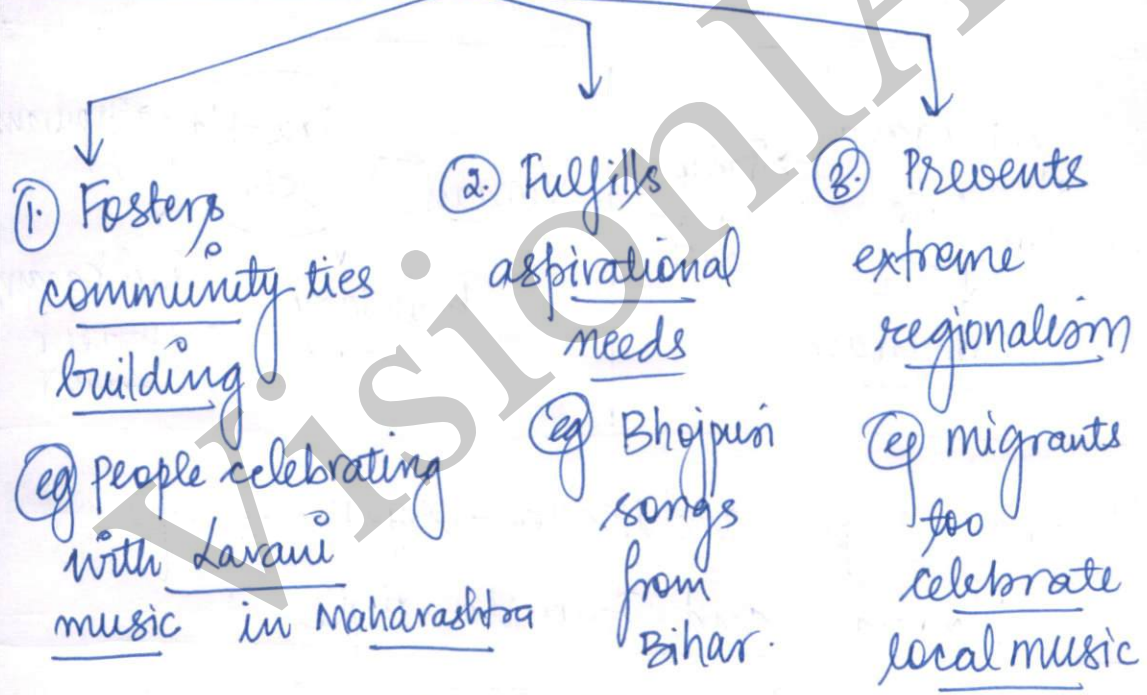 ① Fosters
community ties
building
eg People celebrating
with Lavani
music in Maharashtra
② Fulfills
aspirational
needs
eg Bhojpuri
songs
from
Bihar.
③ Prevents
extreme
regionalism
eg migrants
too
celebrate
local music
VisionIA